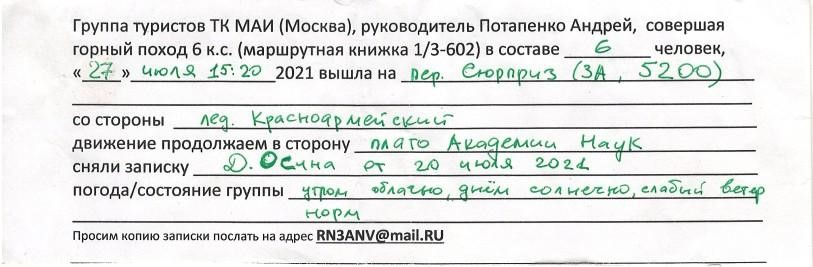 Группа туристов ТК МАИ (Москва), руководитель Потапенко Андрей, совершая
горный поход 6 к.с. (маршрутная книжка 1/3-602) в составе 6 человек,
«27» июля 15:20 2021 вышла на пер. Сюрприз (3А, 5200)
со стороны лед. Красноармейский
движение продолжаем в сторону плато Академии Наук
сняли записку Д. Осина от 20 июля 2021
погода/состояние группы утром облачно, днём солнечно, слабый ветер
норм
Просим копию записки послать на адрес RN3ANV@mail.RU